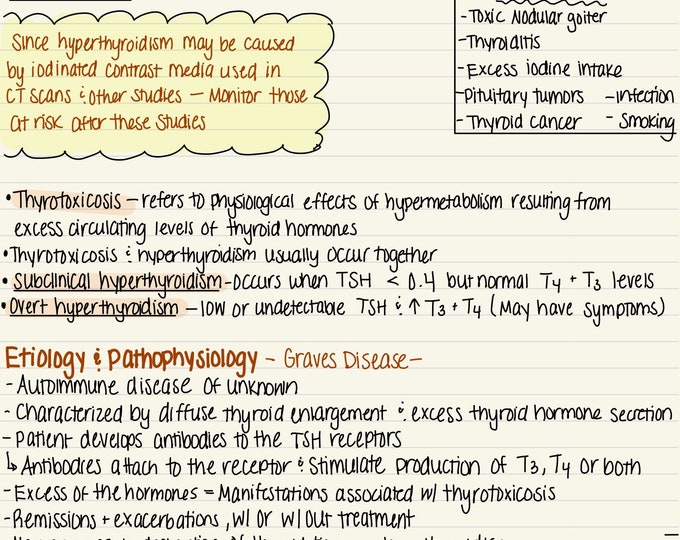 Since hyperthyroidism may be caused
by iodinated contrast media used in
CT scans & other studies — Monitor those
at risk after these studies
- Toxic Nodular goiter
- Thyroiditis
- Excess iodine intake
- Pituitary tumors - infection
- Thyroid cancer - Smoking
• Thyrotoxicosis — refers to physiological effects of hypermetabolism resulting from
excess circulating levels of thyroid hormones
• Thyrotoxicosis & hyperthyroidism usually occur together
• Subclinical hyperthyroidism - occurs when TSH < 0.4 but normal T4 + T3 levels
• Overt hyperthyroidism — low or undetectable TSH & ↑ T3 + T4 (May have symptoms)
Etiology & Pathophysiology - Graves Disease -
- Autoimmune disease of unknown
- Characterized by diffuse thyroid enlargement & excess thyroid hormone secretion
- Patient develops antibodies to the TSH receptors
↳ Antibodies attach to the receptor & Stimulate production of T3, T4 or both
- Excess of the hormones = Manifestations associated w/ thyrotoxicosis
- Remissions + exacerbations, w/ or w/out treatment